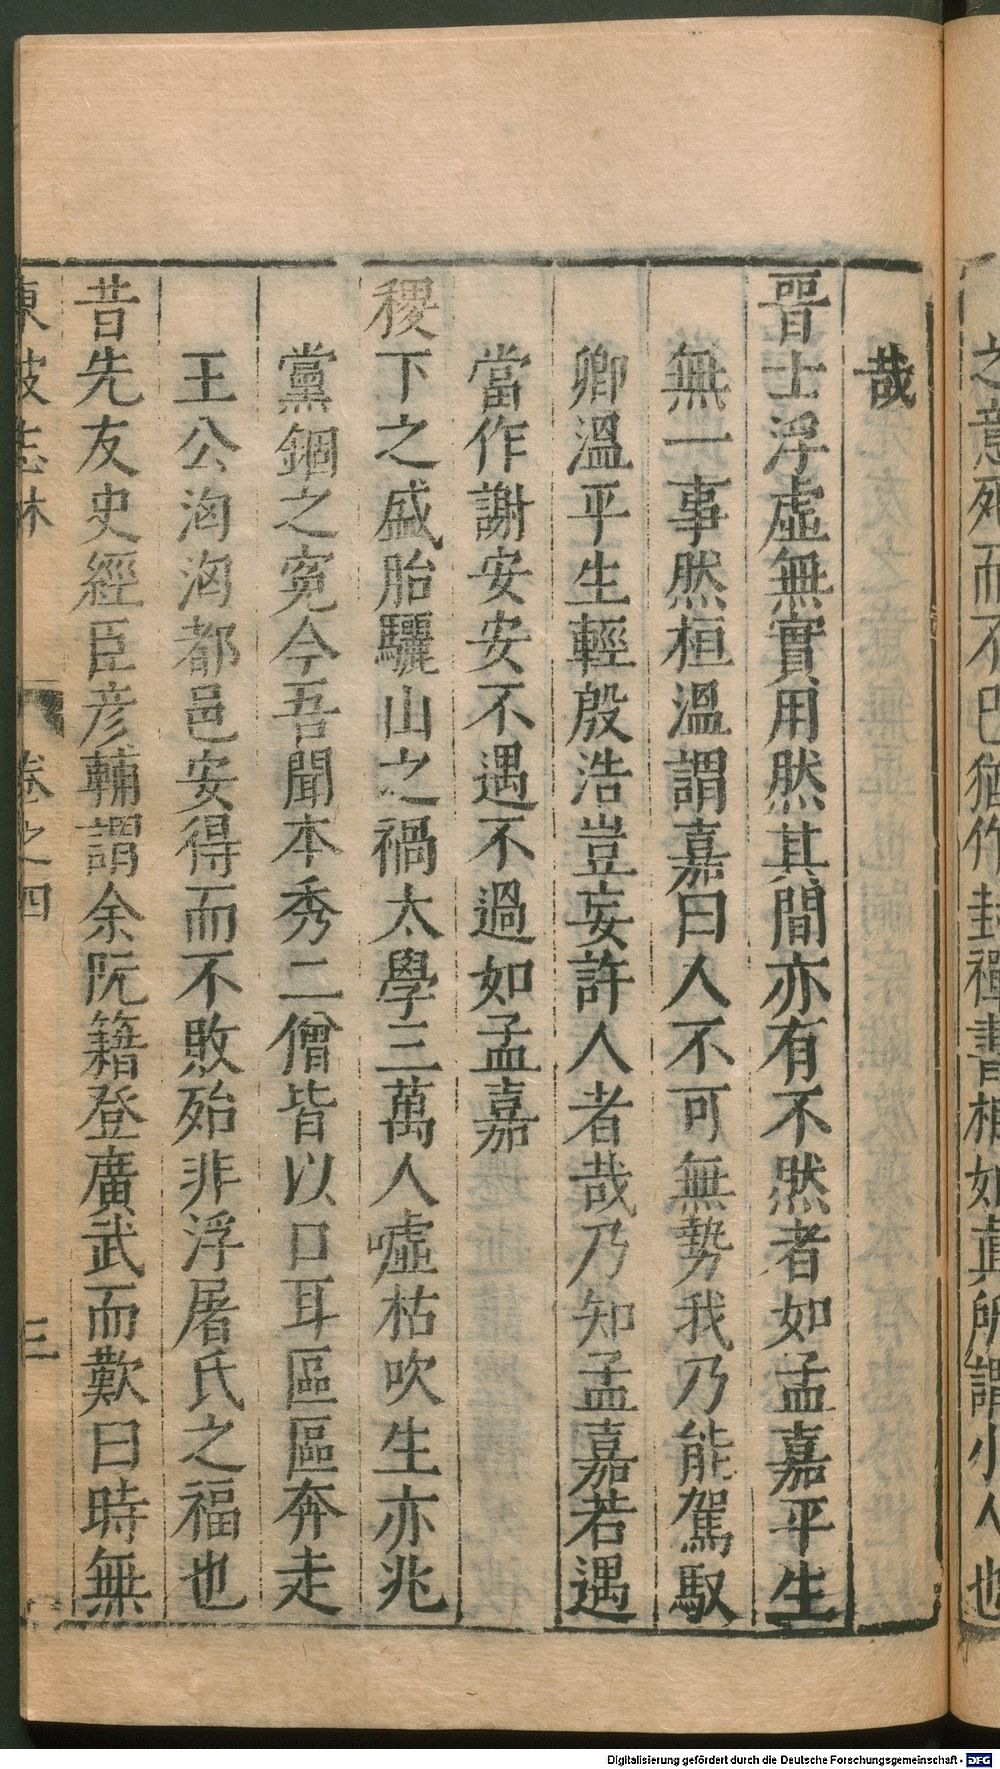 之意死而不已猶作封禪書相如真所謂小人也
哉
晉士浮虛無實用然其間亦有不然者如孟嘉平生
無一事然桓溫謂嘉曰人不可無勢我乃能駕馭
卿溫平生輕殷浩豈妄許人者哉乃知孟嘉若遇
當作謝安安不遇不過如孟嘉
稷下之盛胎驪山之禍太學三萬人噓枯吹生亦兆
黨錮之冤今吾聞本秀二僧皆以口耳區區奔走
王公洶洶都邑安得而不敗殆非浮屠氏之福也
昔先友史經臣彥輔謂余阮籍登廣武而歎曰時無
東坡志林 卷之四 三
Digitalisierung gefördert durch die Deutsche Forschungsgemeinschaft - DFG